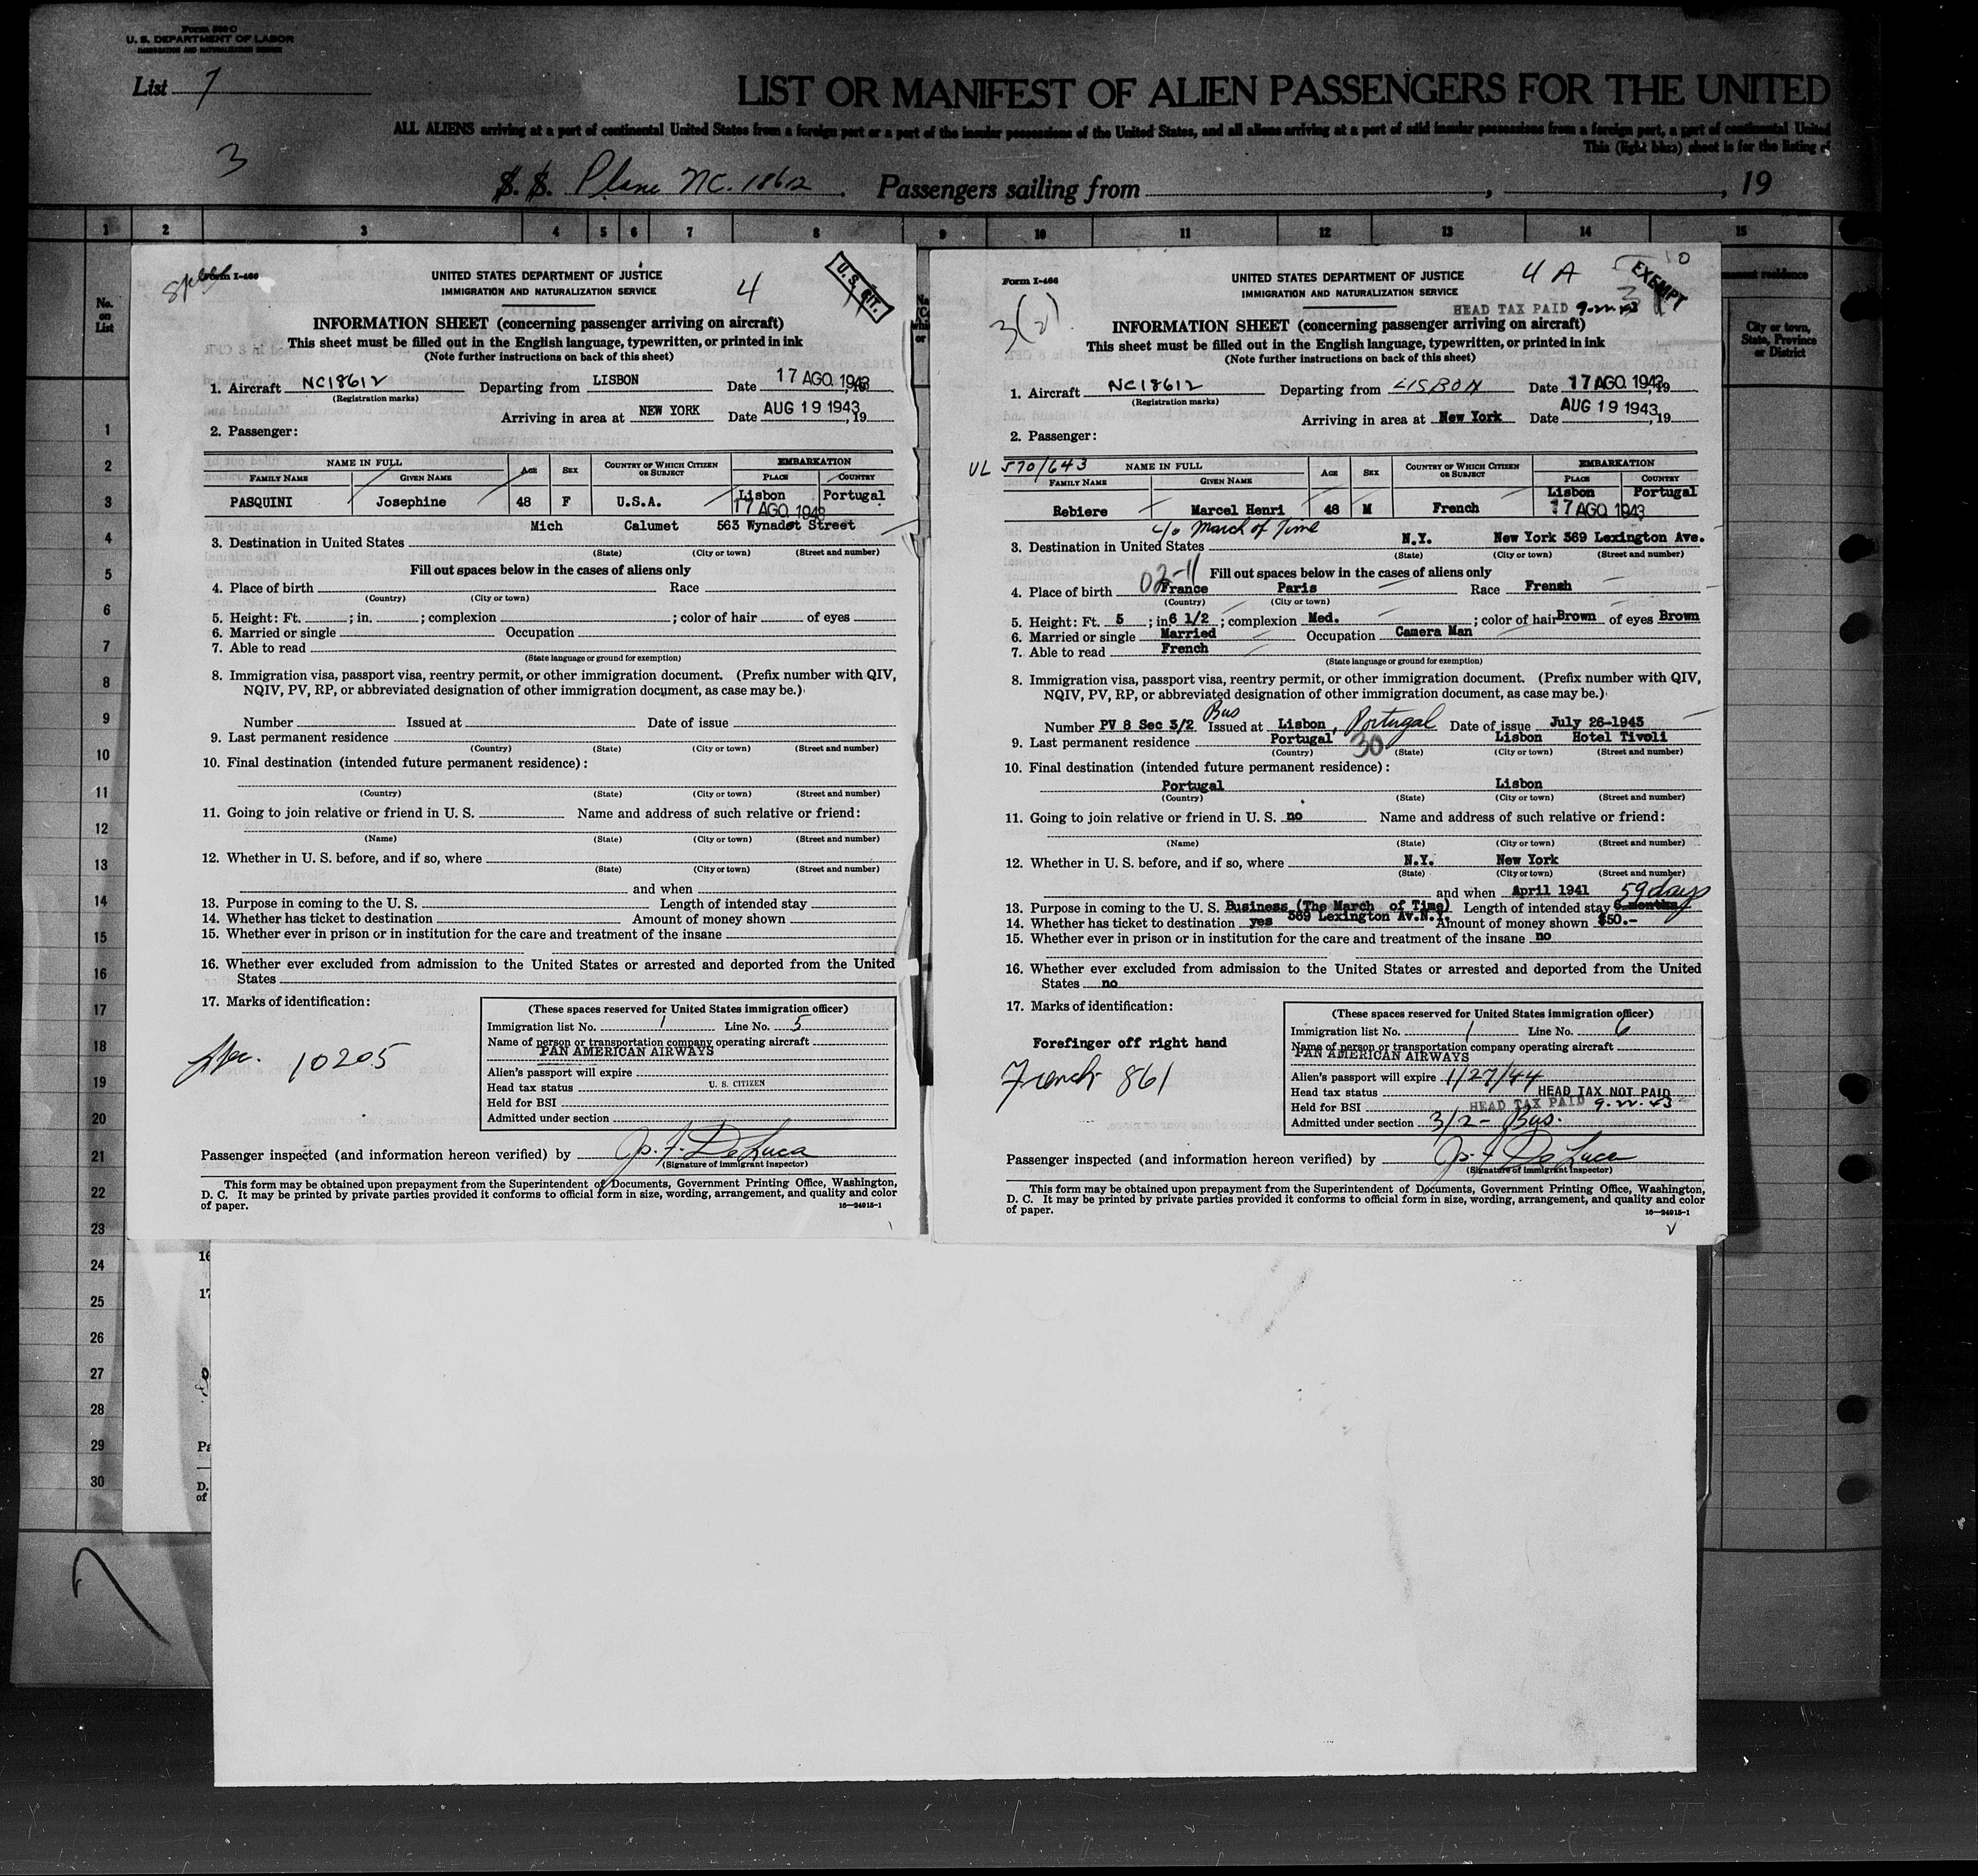 Form 500 C
U. S. DEPARTMENT OF LABOR
IMMIGRATION AND NATURALIZATION SERVICE
List 7
3
LIST OR MANIFEST OF ALIEN PASSENGERS FOR THE UNITED
ALL ALIENS arriving at a port of continental United States from a foreign port or a port of the insular possessions of the United States, and all aliens arriving at a port of said insular possessions from a foreign port, a port of continental United
This (light blue) sheet is for the listing of
S. S. Plane NC. 18612 . Passengers sailing from , , 19
1 2 3 4 5 6 7 8 9 10 11 12 13 14 15
No. on List
permanent residence
City or town, State, Province or District
1
2
3
4
5
6
7
8
9
10
11
12
13
14
15
16
17
18
19
20
21
22
23
24
25
26
27
28
29
30
7
Form I-466
UNITED STATES DEPARTMENT OF JUSTICE
IMMIGRATION AND NATURALIZATION SERVICE
4
U. S. CIT.
INFORMATION SHEET (concerning passenger arriving on aircraft)
This sheet must be filled out in the English language, typewritten, or printed in ink
(Note further instructions on back of this sheet)
1. Aircraft NC18612 Departing from LISBON Date 17 AGO. 1943
(Registration marks)
Arriving in area at NEW YORK Date AUG 19 1943, 19
2. Passenger:
NAME IN FULL AGE SEX COUNTRY OF WHICH CITIZEN OR SUBJECT EMBARKATION
FAMILY NAME GIVEN NAME PLACE COUNTRY
PASQUINI Josephine 48 F U.S.A. Lisbon Portugal
17 AGO. 1943
Mich Calumet 563 Wynadot Street
3. Destination in United States
(State) (City or town) (Street and number)
Fill out spaces below in the cases of aliens only
4. Place of birth Race
(Country) (City or town)
5. Height: Ft. ; in. ; complexion ; color of hair of eyes
6. Married or single Occupation
7. Able to read
(State language or ground for exemption)
8. Immigration visa, passport visa, reentry permit, or other immigration document. (Prefix number with QIV,
NQIV, PV, RP, or abbreviated designation of other immigration document, as case may be.)
Number Issued at Date of issue
9. Last permanent residence
(Country) (State) (City or town) (Street and number)
10. Final destination (intended future permanent residence):
(Country) (State) (City or town) (Street and number)
11. Going to join relative or friend in U. S. Name and address of such relative or friend:
(Name) (State) (City or town) (Street and number)
12. Whether in U. S. before, and if so, where
(State) (City or town) (Street and number)
and when
13. Purpose in coming to the U. S. Length of intended stay
14. Whether has ticket to destination Amount of money shown
15. Whether ever in prison or in institution for the care and treatment of the insane
16. Whether ever excluded from admission to the United States or arrested and deported from the United
States
17. Marks of identification:
10205
(These spaces reserved for United States immigration officer)
Immigration list No. 1 Line No. 5
Name of person or transportation company operating aircraft
PAN AMERICAN AIRWAYS
Alien's passport will expire
Head tax status U. S. CITIZEN
Held for BSI
Admitted under section
Passenger inspected (and information hereon verified) by Jo. F. DeLuca
(Signature of immigrant inspector)
This form may be obtained upon prepayment from the Superintendent of Documents, Government Printing Office, Washington,
D. C. It may be printed by private parties provided it conforms to official form in size, wording, arrangement, and quality and color
of paper. 16—24915-1
Form I-466
UNITED STATES DEPARTMENT OF JUSTICE
IMMIGRATION AND NATURALIZATION SERVICE
4 A
EXEMPT
3(2)
HEAD TAX PAID 9-22-43
INFORMATION SHEET (concerning passenger arriving on aircraft)
This sheet must be filled out in the English language, typewritten, or printed in ink
(Note further instructions on back of this sheet)
1. Aircraft NC18612 Departing from LISBON Date 17 AGO. 1943, 19
(Registration marks)
Arriving in area at New York Date AUG 19 1943, 19
2. Passenger:
UL 570/643
NAME IN FULL AGE SEX COUNTRY OF WHICH CITIZEN OR SUBJECT EMBARKATION
FAMILY NAME GIVEN NAME PLACE COUNTRY
Rebiere Marcel Henri 48 M French Lisbon Portugal
17 AGO. 1943
c/o March of Time
3. Destination in United States N.Y. New York 369 Lexington Ave.
(State) (City or town) (Street and number)
02-11 Fill out spaces below in the cases of aliens only
4. Place of birth France Paris Race French
(Country) (City or town)
5. Height: Ft. 5 ; in 6 1/2 ; complexion Med. ; color of hair Brown of eyes Brown
6. Married or single Married Occupation Camera Man
7. Able to read French
(State language or ground for exemption)
8. Immigration visa, passport visa, reentry permit, or other immigration document. (Prefix number with QIV,
NQIV, PV, RP, or abbreviated designation of other immigration document, as case may be.)
Bus
Number PV 8 Sec 3/2 Issued at Lisbon, Portugal Date of issue July 26-1943
9. Last permanent residence Portugal 30 Lisbon Hotel Tivoli
(Country) (State) (City or town) (Street and number)
10. Final destination (intended future permanent residence):
Portugal Lisbon
(Country) (State) (City or town) (Street and number)
11. Going to join relative or friend in U. S. no Name and address of such relative or friend:
(Name) (State) (City or town) (Street and number)
12. Whether in U. S. before, and if so, where N.Y. New York
(State) (City or town) (Street and number)
and when April 1941 59 days
13. Purpose in coming to the U. S. Business (The March of Time) Length of intended stay 6 months
14. Whether has ticket to destination yes 369 Lexington Av.N.Y. Amount of money shown $50.-
15. Whether ever in prison or in institution for the care and treatment of the insane no
16. Whether ever excluded from admission to the United States or arrested and deported from the United
States no
17. Marks of identification:
Forefinger off right hand
French 861
(These spaces reserved for United States immigration officer)
Immigration list No. 1 Line No. 6
Name of person or transportation company operating aircraft
PAN AMERICAN AIRWAYS
Alien's passport will expire 1/27/44
Head tax status HEAD TAX NOT PAID
Held for BSI HEAD TAX PAID 9-22-43
Admitted under section 3/2 - Bus.
Passenger inspected (and information hereon verified) by Jo. F. DeLuca
(Signature of immigrant inspector)
This form may be obtained upon prepayment from the Superintendent of Documents, Government Printing Office, Washington,
D. C. It may be printed by private parties provided it conforms to official form in size, wording, arrangement, and quality and color
of paper. 16—24915-1